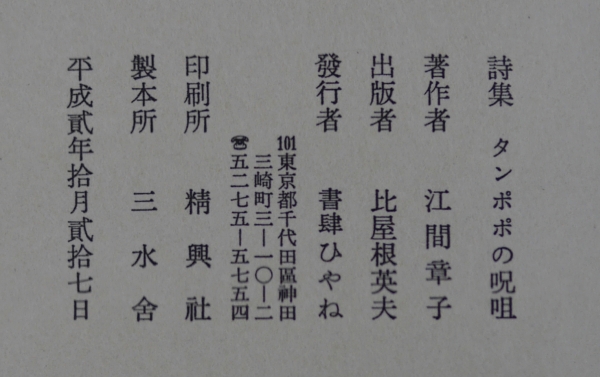 詩集 タンポポの呪咀
著作者 江間章子
出版者 比屋根英夫
發行者 書肆ひやね
101東京都千代田區神田
三崎町三—一〇—二
☎五二七五—五七五四
印刷所 精興社
製本所 三水舎
平成貳年拾月貳拾七日